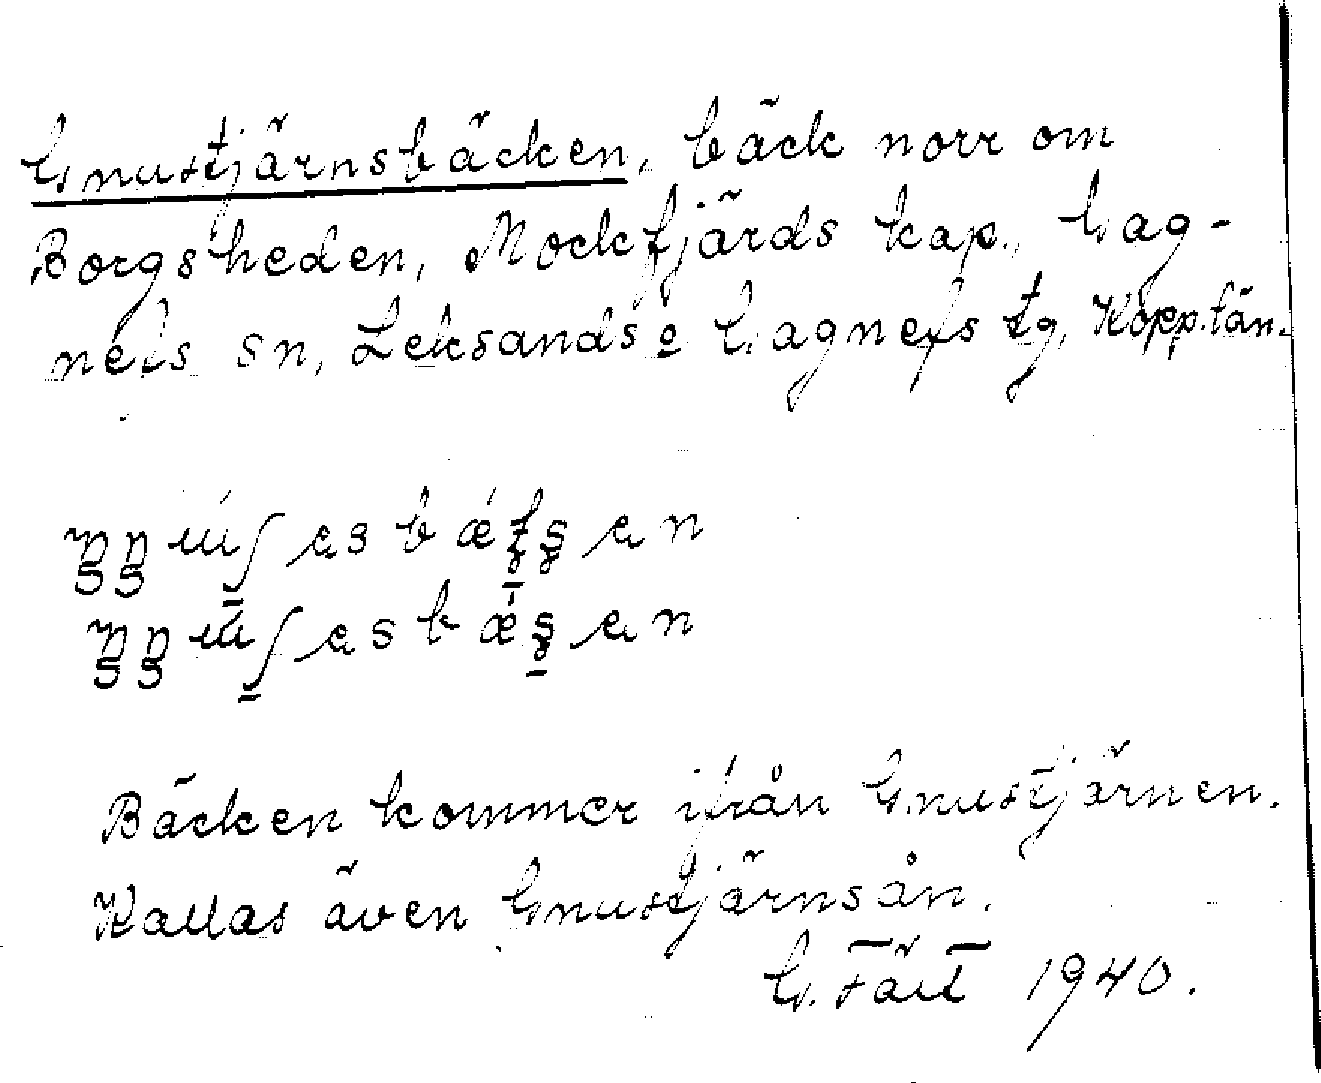 Gnustjärnsbäcken, bäck norr om
Borgsheden, Mockfjärds kap., Gag-
nefs sn, Leksands o Gagnefs tg, Kopp.län.
Bäcken kommer ifrån Gnustjärnen.
Kallas även Gnustjärnsån.
G. Tält 1940.